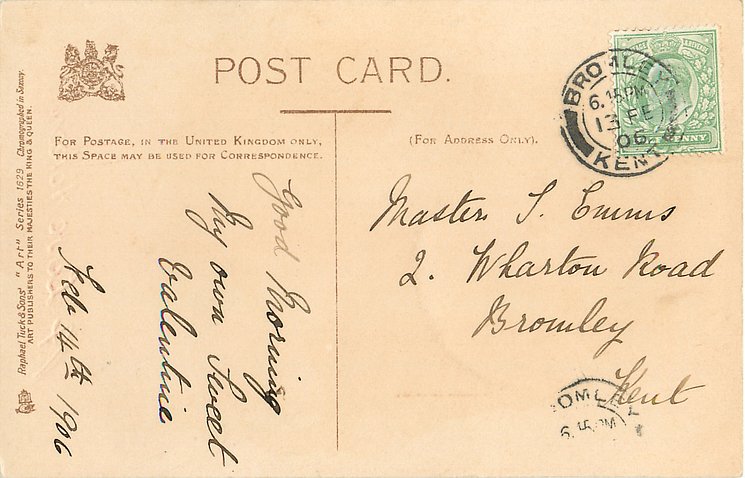 POST CARD.
FOR POSTAGE, IN THE UNITED KINGDOM ONLY,
THIS SPACE MAY BE USED FOR CORRESPONDENCE.
(FOR ADDRESS ONLY).
Raphael Tuck & Sons' "Art" Series 1629. Chromographed in Saxony.
ART PUBLISHERS TO THEIR MAJESTIES THE KING & QUEEN.
Good Morning
My own Sweet
Valentine
Feb 14th 1906
BROMLEY
6.15 PM
13 FE
06
KENT
PENNY
Master S. Emms
2. Wharton Road
Bromley
Kent
OMLEY
6.15 PM